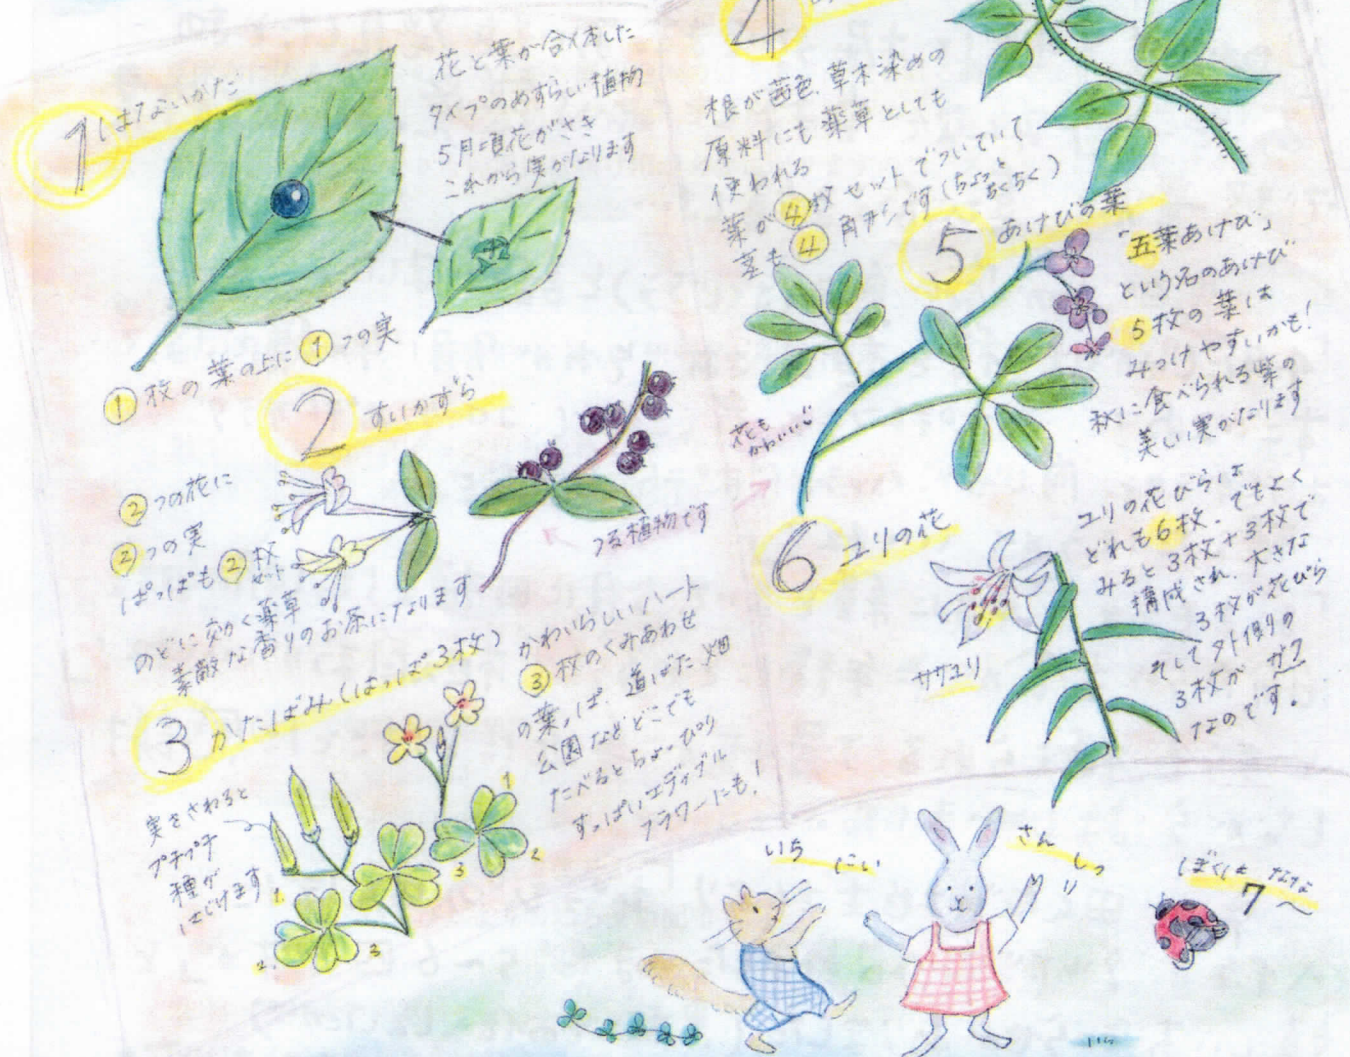 1 はないかだ
花と葉が合体した
タイプのめずらしい植物
5月頃花がさき
これから実がなります
1枚の葉の上に1つの実
2 すいかずら
2つの花に
2つの実
ぱっぱも2枚
セット
のどに効く薬草
素敵な香りのお茶になります
つる植物です
3 かたばみ(はっぱ3枚)
かわいらしいハート
3枚のくみあわせ
の葉っぱ。道ばた畑
公園などどこでも
たべるとちょっぴり
すっぱいエディブル
フラワーにも!
実をさわると
プチプチ
種が
はじけます
1.
2.
3
1
2
3
4
根が茜色 草木染めの
原料にも薬草としても
使われる
葉が4枚セットでついていて
茎も4角形です(ちょっと
ちくちく)
5 あけびの葉
「五葉あけび」
という名のあけび
5枚の葉は
みつけやすいかも!
秋に食べられる紫の
美しい実がなります
花も
かわいい
6 ユリの花
ユリの花びらは
どれも6枚。でもよく
みると3枚+3枚で
構成され、大きな
3枚が花びら
そして外側の
3枚がガク
なのです。
ササユリ
いち
にい
さん
しっ
ぼくは なな
7〜